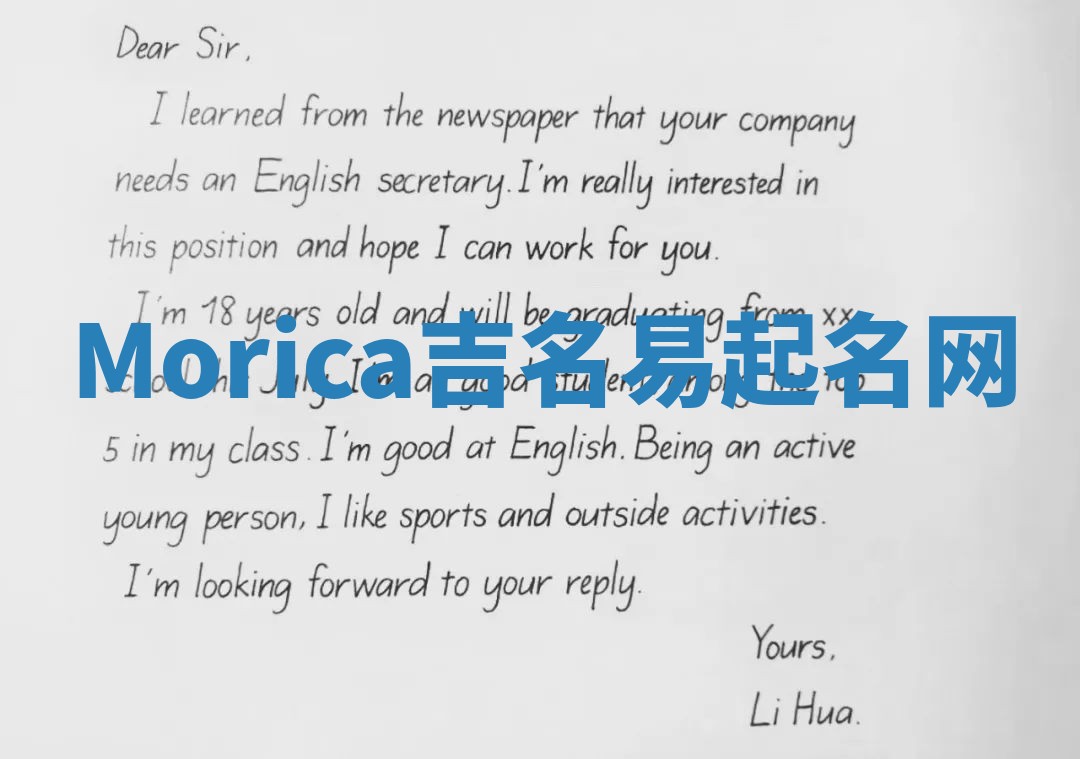 Dear Sir,
I learned from the newspaper that your company
needs an English secretary. I'm really interested in
this position and hope I can work for you.
I'm 18 years old and will be graduating from xx
Morica吉名易起名网
school July. I'm a good student among the top
5 in my class. I'm good at English. Being an active
young person, I like sports and outside activities.
I'm looking forward to your reply.
Yours,
Li Hua.